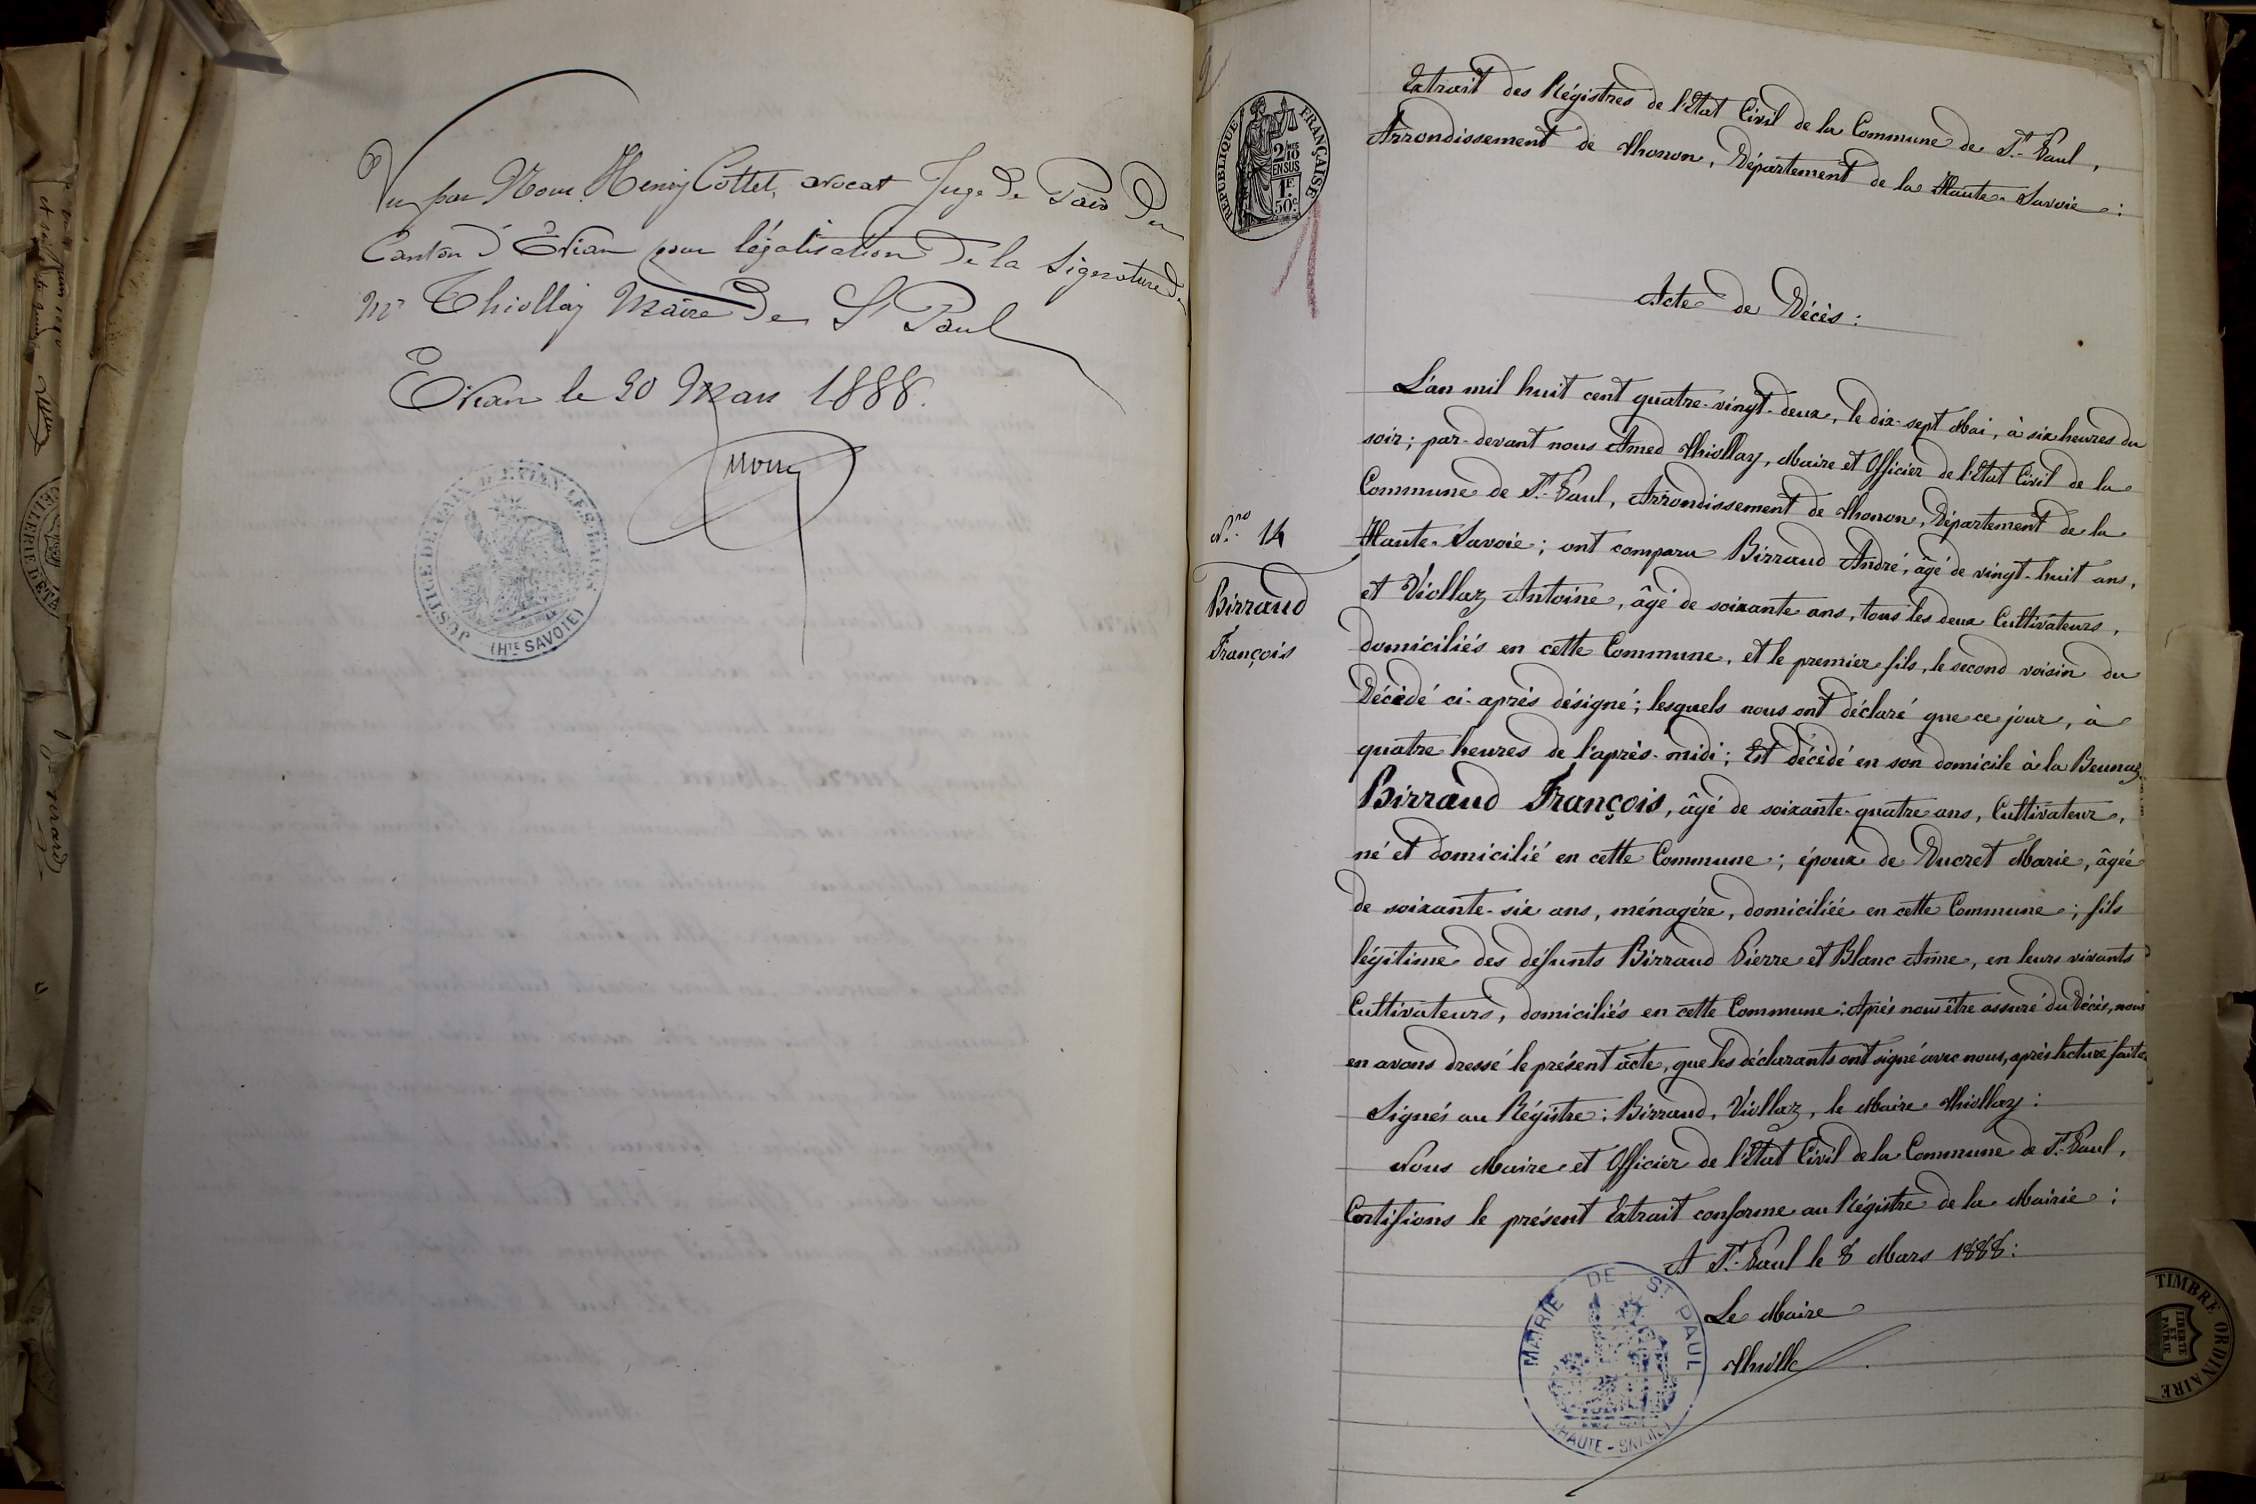 Vu par Nous Henry Cottet, avocat Juge de Paix du
Canton d'Evian pour légalisation de la signature de
Mr Thiollay Maire de St Paul
Evian le 30 Mars 1888.
JUSTICE DE PAIX D'EVIAN-LES-BAINS
(HTE SAVOIE)
REPUBLIQUE FRANÇAISE
2/10 MES
EN SUS
1F.
50c
Extrait des Régistres de l'Etat Civil de la Commune de St. Paul,
Arrondissement de Thonon, Département de la Haute-Savoie:
Acte de Décès:
L'an mil huit cent quatre-vingt-deux, le dix-sept Mai, à six heures du
soir; par-devant nous Amed Thiollay, Maire et Officier de l'Etat Civil de la
Commune de St. Paul, Arrondissement de Thonon, Département de la
N.ro 14
Haute-Savoie; ont comparu Birraud André, âgé de vingt-huit ans,
Birraud
François
et Viollaz Antoine, âgé de soixante ans, tous les deux Cultivateurs,
domiciliés en cette Commune, et le premier fils, le second voisin du
Décédé ci-après désigné; lesquels nous ont déclaré que ce jour, à
quatre heures de l'après-midi; Est décédé en son domicile à la Beunaz
Birraud François, âgé de soixante-quatre ans, Cultivateur,
né et domicilié en cette Commune; époux de Ducret Marie, âgée
de soixante-six ans, ménagére, domiciliée en cette Commune; fils
légitime des défunts Birraud Pierre et Blanc Anne, en leurs vivants
Cultivateurs, domiciliés en cette Commune: Après nous être assuré du Décès, nous
en avons dressé le présent acte, que les déclarants ont signé avec nous, après lecture faite.
Signés au Régistre: Birraud, Viollaz, le Maire Thiollay:
Nous Maire et Officier de l'Etat Civil de la Commune de St. Paul,
Certifions le présent Extrait conforme au Régistre de la Mairie:
A St. Paul le 8 Mars 1888:
Le Maire
MAIRIE DE ST PAUL
(HAUTE-SAVOIE)
TIMBRE ORDINAIRE
LIBERTÉ
ET
PATRIE